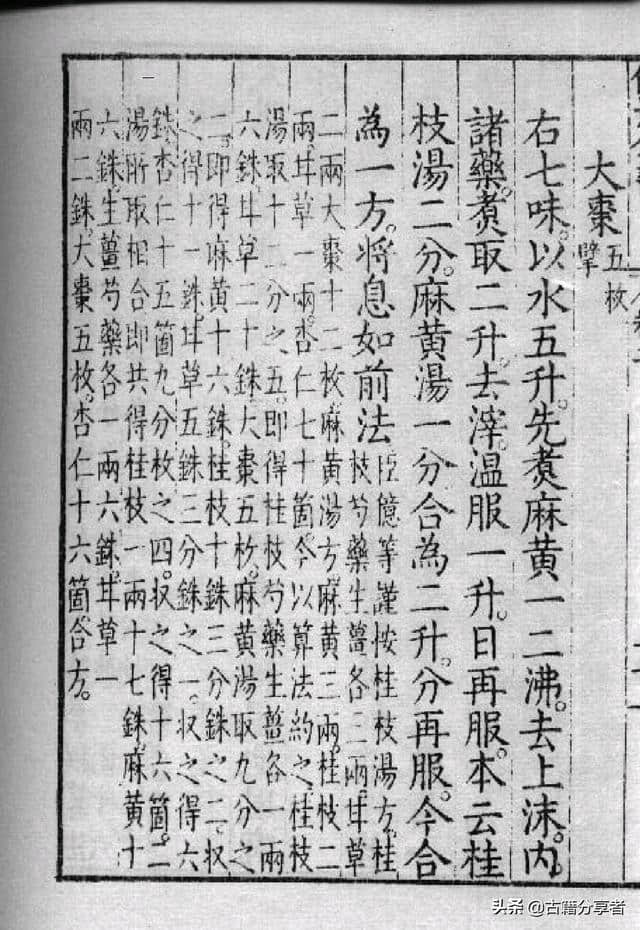 大棗五枚
擘
右七味。以水五升。先煮麻黃一二沸。去上沫。內
諸藥。煮取二升。去滓。溫服一升。日再服。本云桂
枝湯二分。麻黃湯一分合為二升。分再服。今合
為一方。將息如前法
臣億等謹按桂枝湯方。桂
枝芍藥生薑各三兩。甘草
二兩大棗十二枚麻黃湯方。麻黃三兩。桂枝二
兩。甘草一兩。杏仁七十箇。今以算法約之。桂枝
湯取十二分之五。即得桂枝芍藥生薑各一兩
六銖。甘草二十銖。大棗五枚。麻黃湯取九分之
二。即得麻黃十六銖。桂枝十銖三分銖之二。収
之得十一銖。甘草五銖三分銖之一。収之得六
銖。杏仁十五箇九分枚之四。収之得十六箇。二
湯所取相合即共得桂枝一兩十七銖。麻黃十
六銖。生薑芍藥各一兩六銖。甘草一
兩二銖。大棗五枚。杏仁十六箇。合方。
头条 @古籍分享者